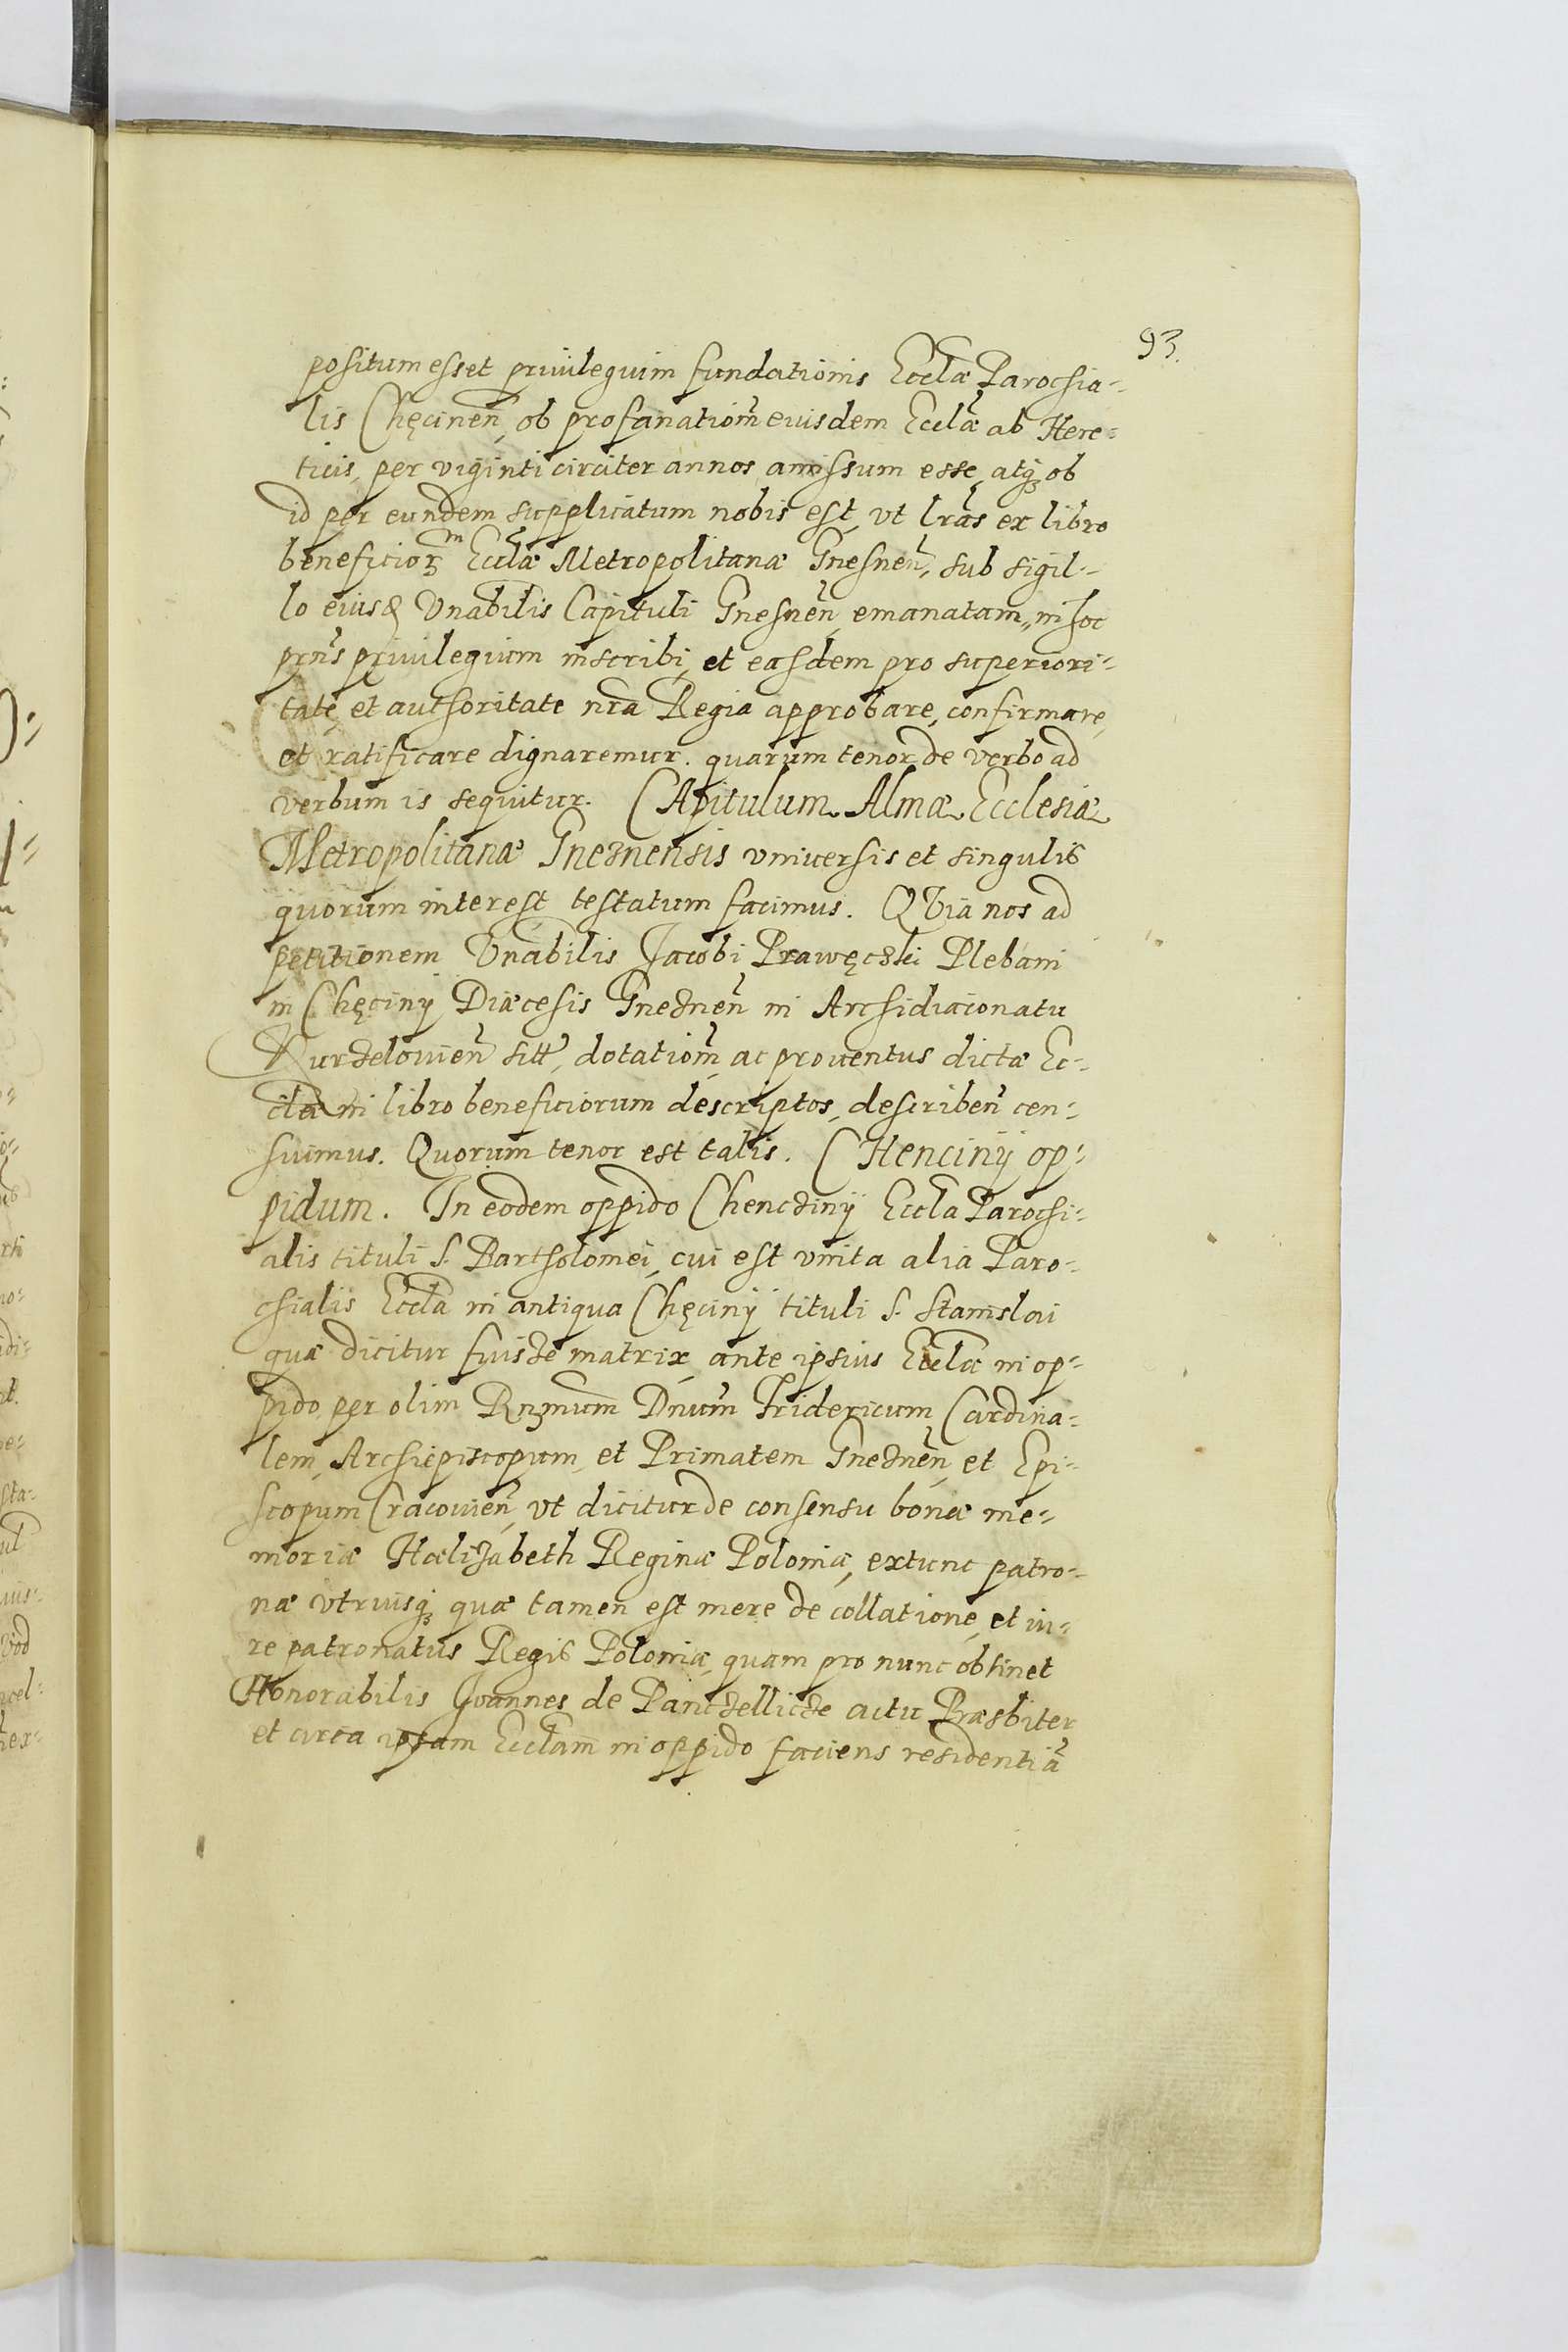 93.
positum esset priuilegium fundationis Eccłæ Parochia-
lis Chęcinen̄, ob profanatiom̄ eiusdem Eccłæ ab Here-
ticis, per viginti circiter annos amissum esse, atq; ob
id per eundem supplicatum nobis est, vt lr̄as ex libro
beneficior. Eccłæ Metropolitanæ Gnesnen̄, sub sigil-
lo eiusd Vnabilis Capituli Gnesnen̄, emanatam, in hoc
prn̄s priuilegium inscribi, et easdem pro superiori-
tate, et authoritate nr̄a Regia approbare, confirmare,
et ratificare dignaremur. quarum tenor de verbo ad
verbum is sequitur. CApitulum Almæ Ecclesiæ
Metropolitanæ Gneznensis vniuersis et singulis
quorum interest testatum facimus. QVia nos ad
petitionem Vnabilis Jacobi Prawęczki Plebani
in Chęciny Diæcesis Gneznen̄ in Archidiaconatu
Kurzelouien̄ sitt, dotatiom̄, ac prouentus dictæ Ec-
clæ in libro beneficiorum descriptos, describen̄ cen-
suimus. Quorum tenor est talis. CHenciny op-
pidum. In eodem oppido Chencziny Eccła Parochi-
alis tituli S. Bartholomei, cui est vnita alia Paro-
chialis Eccła in antiqua Chęciny tituli S. Stanislai
quæ dicitur fuisse matrix, ante ipsius Eccłæ in op-
pido, per olim Rnzmum Dnum̄ Fridericum Cardina-
lem, Archiepiscopum, et Primatem Gneznen̄, et Epi-
scopum Cracouien̄, vt dicitur de consensu bonæ me-
moriæ Hælizabeth Reginæ Poloniæ, extunc patro-
næ vtriusq; quæ tamen est mere de collatione, et iu-
re patronatus Regis Poloniæ, quam pro nunc obtinet
Honorabilis Joannes de Panczellicze actu Præsbiter
et circa ipsam Eccłam in oppido faciens residentiā